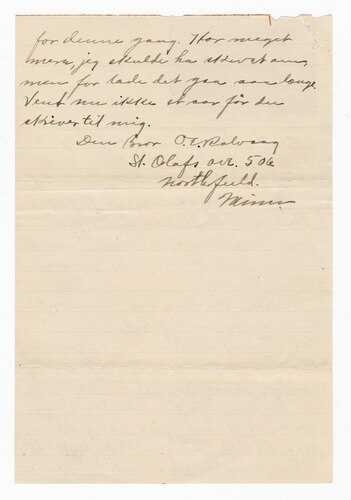 for denne gang. Har meget
mera jeg skulde ha skrevet om,
men for lade det gaa saa længe.
Vent nu ikke et aar før du
skriver til mig.
Din Bror O. E. Rølvaag
St. Olafs ave. 506
Northfield.
Minn.